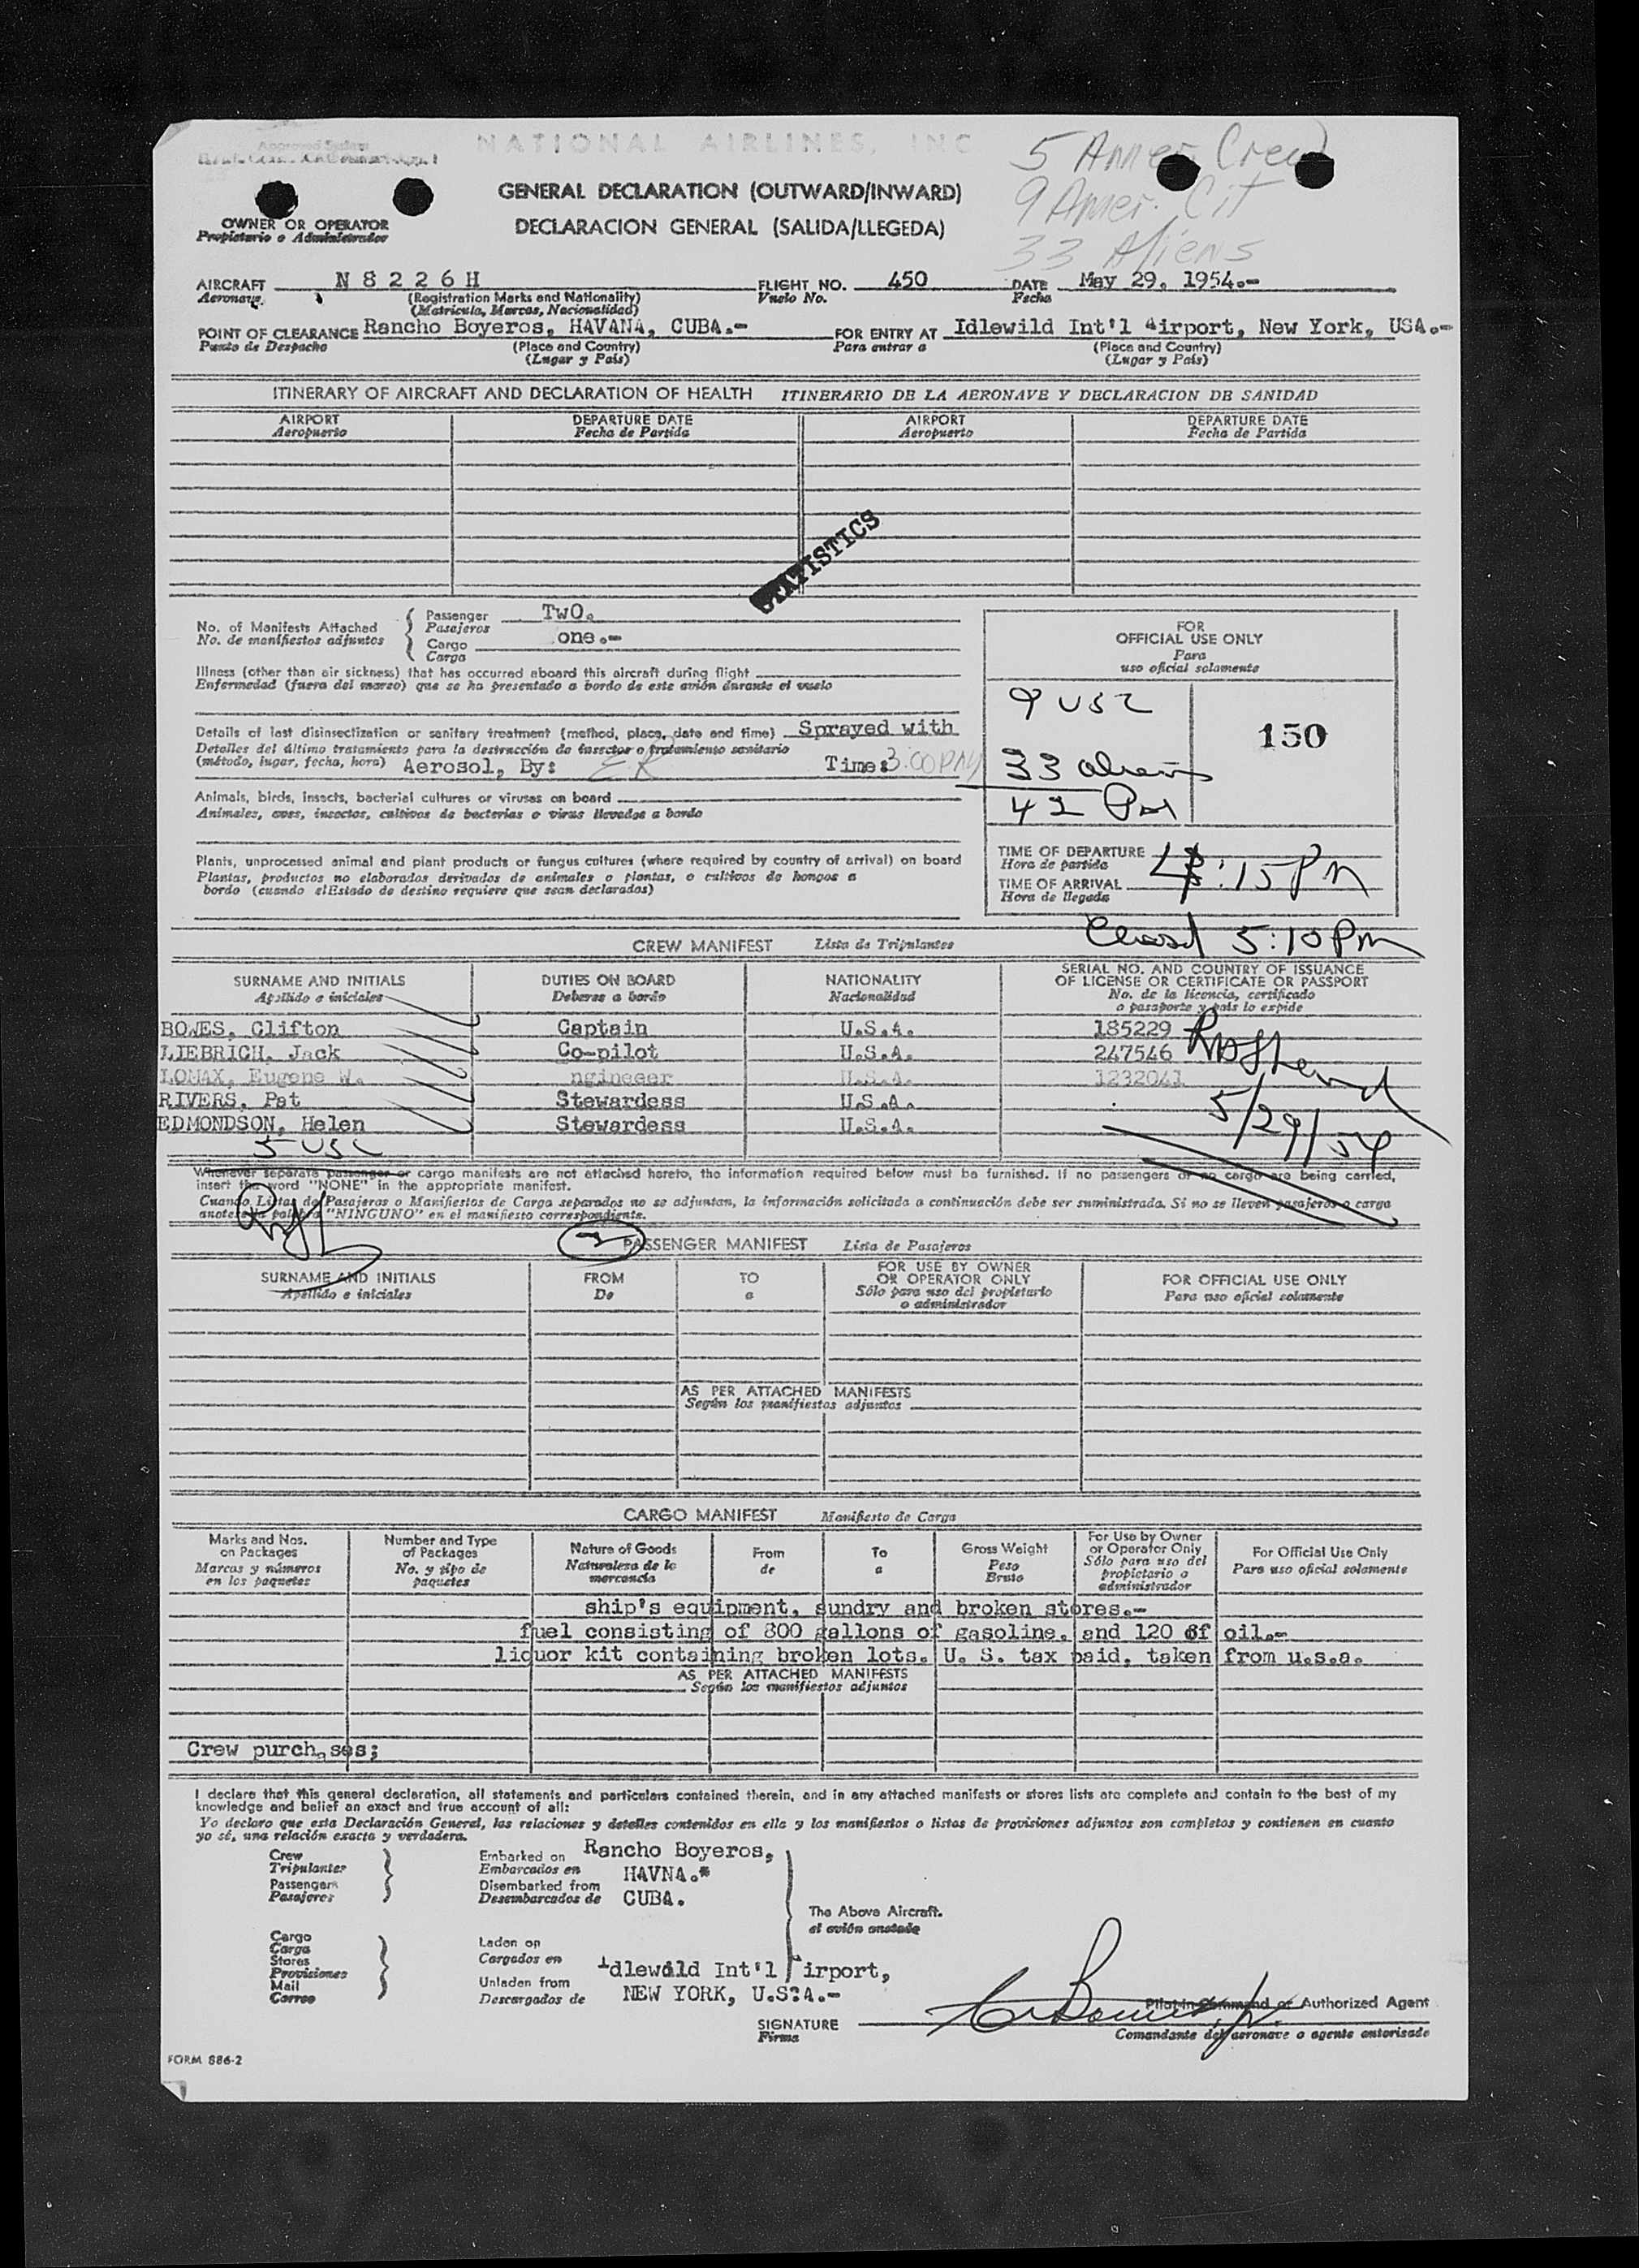 NATIONAL AIRLINES, INC
5 Amer. Crew
9 Amer. Cit
33 Aliens
GENERAL DECLARATION (OUTWARD/INWARD)
DECLARACION GENERAL (SALIDA/LLEGEDA)
OWNER OR OPERATOR
Propietario o Administrador
AIRCRAFT N 8 2 2 6 H FLIGHT NO. 450 DATE May 29, 1954.-
Aeronave. (Registration Marks and Nationality) Vuelo No. Fecha
(Matricula, Marcas, Nacionalidad)
POINT OF CLEARANCE Rancho Boyeros, HAVANA, CUBA.- FOR ENTRY AT Idlewild Int'l Airport, New York, USA.-
Punto de Despacho (Place and Country) Para entrar a (Place and Country)
(Lugar y País) (Lugar y País)
ITINERARY OF AIRCRAFT AND DECLARATION OF HEALTH ITINERARIO DE LA AERONAVE Y DECLARACION DE SANIDAD
AIRPORT DEPARTURE DATE AIRPORT DEPARTURE DATE
Aeropuerto Fecha de Partida Aeropuerto Fecha de Partida
STATISTICS
No. of Manifests Attached Passenger TwO.
No. de manifiestos adjuntos Pasajeros
Cargo one.-
Carga
FOR
OFFICIAL USE ONLY
Para
uso oficial solamente
Illness (other than air sickness) that has occurred aboard this aircraft during flight
Enfermedad (fuera del mareo) que se ha presentado a bordo de este avión durante el vuelo
9 USC
150
Details of last disinsectization or sanitary treatment (method, place, date and time) Sprayed with
Detalles del último tratamiento para la destrucción de insectos o tratamiento sanitario
(método, lugar, fecha, hora) Aerosol, By: ER Time: 3:00 PM
33 aliens
42 Pax
Animals, birds, insects, bacterial cultures or viruses on board
Animales, aves, insectos, cultivos de bacterias o virus llevados a bordo
Plants, unprocessed animal and plant products or fungus cultures (where required by country of arrival) on board
Plantas, productos no elaborados derivados de animales o plantas, o cultivos de hongos a
bordo (cuando elEstado de destino requiere que sean declarados)
TIME OF DEPARTURE
Hora de partida
TIME OF ARRIVAL 4:15 PM
Hora de llegada
Closed 5:10 PM
CREW MANIFEST Lista de Tripulantes
SURNAME AND INITIALS DUTIES ON BOARD NATIONALITY SERIAL NO. AND COUNTRY OF ISSUANCE
OF LICENSE OR CERTIFICATE OR PASSPORT
Apellido e iniciales Deberes a bordo Nacionalidad No. de la licencia, certificado
o pasaporte y país lo expide
BOWES, Clifton Captain U.S.A. 185229
LIEBRICH, Jack Co-pilot U.S.A. 247546
LOMAX, Eugene W. ngineeer U.S.A. 1232041
RIVERS, Pat Stewardess U.S.A.
EDMONDSON, Helen Stewardess U.S.A.
5/29/54
5 USC
Whenever separate passenger or cargo manifests are not attached hereto, the information required below must be furnished. If no passengers or no cargo are being carried,
insert the word "NONE" in the appropriate manifest.
Cuando Listas de Pasajeros o Manifiestos de Carga separados no se adjuntan, la información solicitada a continuación debe ser suministrada. Si no se lleven pasajeros o carga
anotese la palabra "NINGUNO" en el manifiesto correspondiente.
2 PASSENGER MANIFEST Lista de Pasajeros
SURNAME AND INITIALS FROM TO FOR USE BY OWNER
OR OPERATOR ONLY FOR OFFICIAL USE ONLY
Apellido e iniciales De a Sólo para uso del propietario
o administrador Para uso oficial solamente
AS PER ATTACHED MANIFESTS
Según los manifiestos adjuntos
CARGO MANIFEST Manifiesto de Carga
Marks and Nos.
on Packages
Marcas y números
en los paquetes
Number and Type
of Packages
No. y tipo de
paquetes
Nature of Goods
Naturaleza de la
mercancía
From
de
To
a
Gross Weight
Peso
Bruto
For Use by Owner
or Operator Only
Sólo para uso del
propietario o
administrador
For Official Use Only
Para uso oficial solamente
ship's equipment, sundry and broken stores.-
fuel consisting of 800 gallons of gasoline, and 120 of oil.-
liquor kit containing broken lots. U. S. tax paid, taken from u.s.a.
AS PER ATTACHED MANIFESTS
Según los manifiestos adjuntos
Crew purchases;
I declare that this general declaration, all statements and particulars contained therein, and in any attached manifests or stores lists are complete and contain to the best of my
knowledge and belief an exact and true account of all:
Yo declaro que esta Declaración General, las relaciones y detalles contenidos en ella y los manifiestos o listas de provisiones adjuntos son completos y contienen en cuanto
yo sé, una relación exacta y verdadera.
Crew
Tripulantes
Passengers
Pasajeros
Embarked on Rancho Boyeros,
Embarcados en HAVNA.*
Disembarked from
Desembarcados de CUBA.
The Above Aircraft.
el avión anotado
Cargo
Carga
Stores
Provisiones
Mail
Correo
Laden on
Cargados en Idlewild Int'l Airport,
Unladen from
Descargados de NEW YORK, U.S.A.-
SIGNATURE Pilot-in-Command or Authorized Agent
Firma Comandante del aeronave o agente autorizado
FORM 886-2